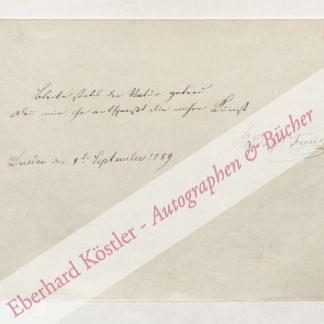 Bleibe stets der Natur getreu
denn nur ihr entsprießt die wahre Kunst
Dresden den 8ten September 1859
Eberhard Köstler - Autographen & Bücher